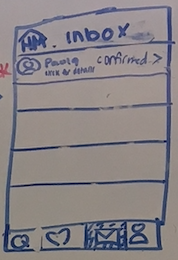 HM. Inbox
Paula confirmed >
click for details